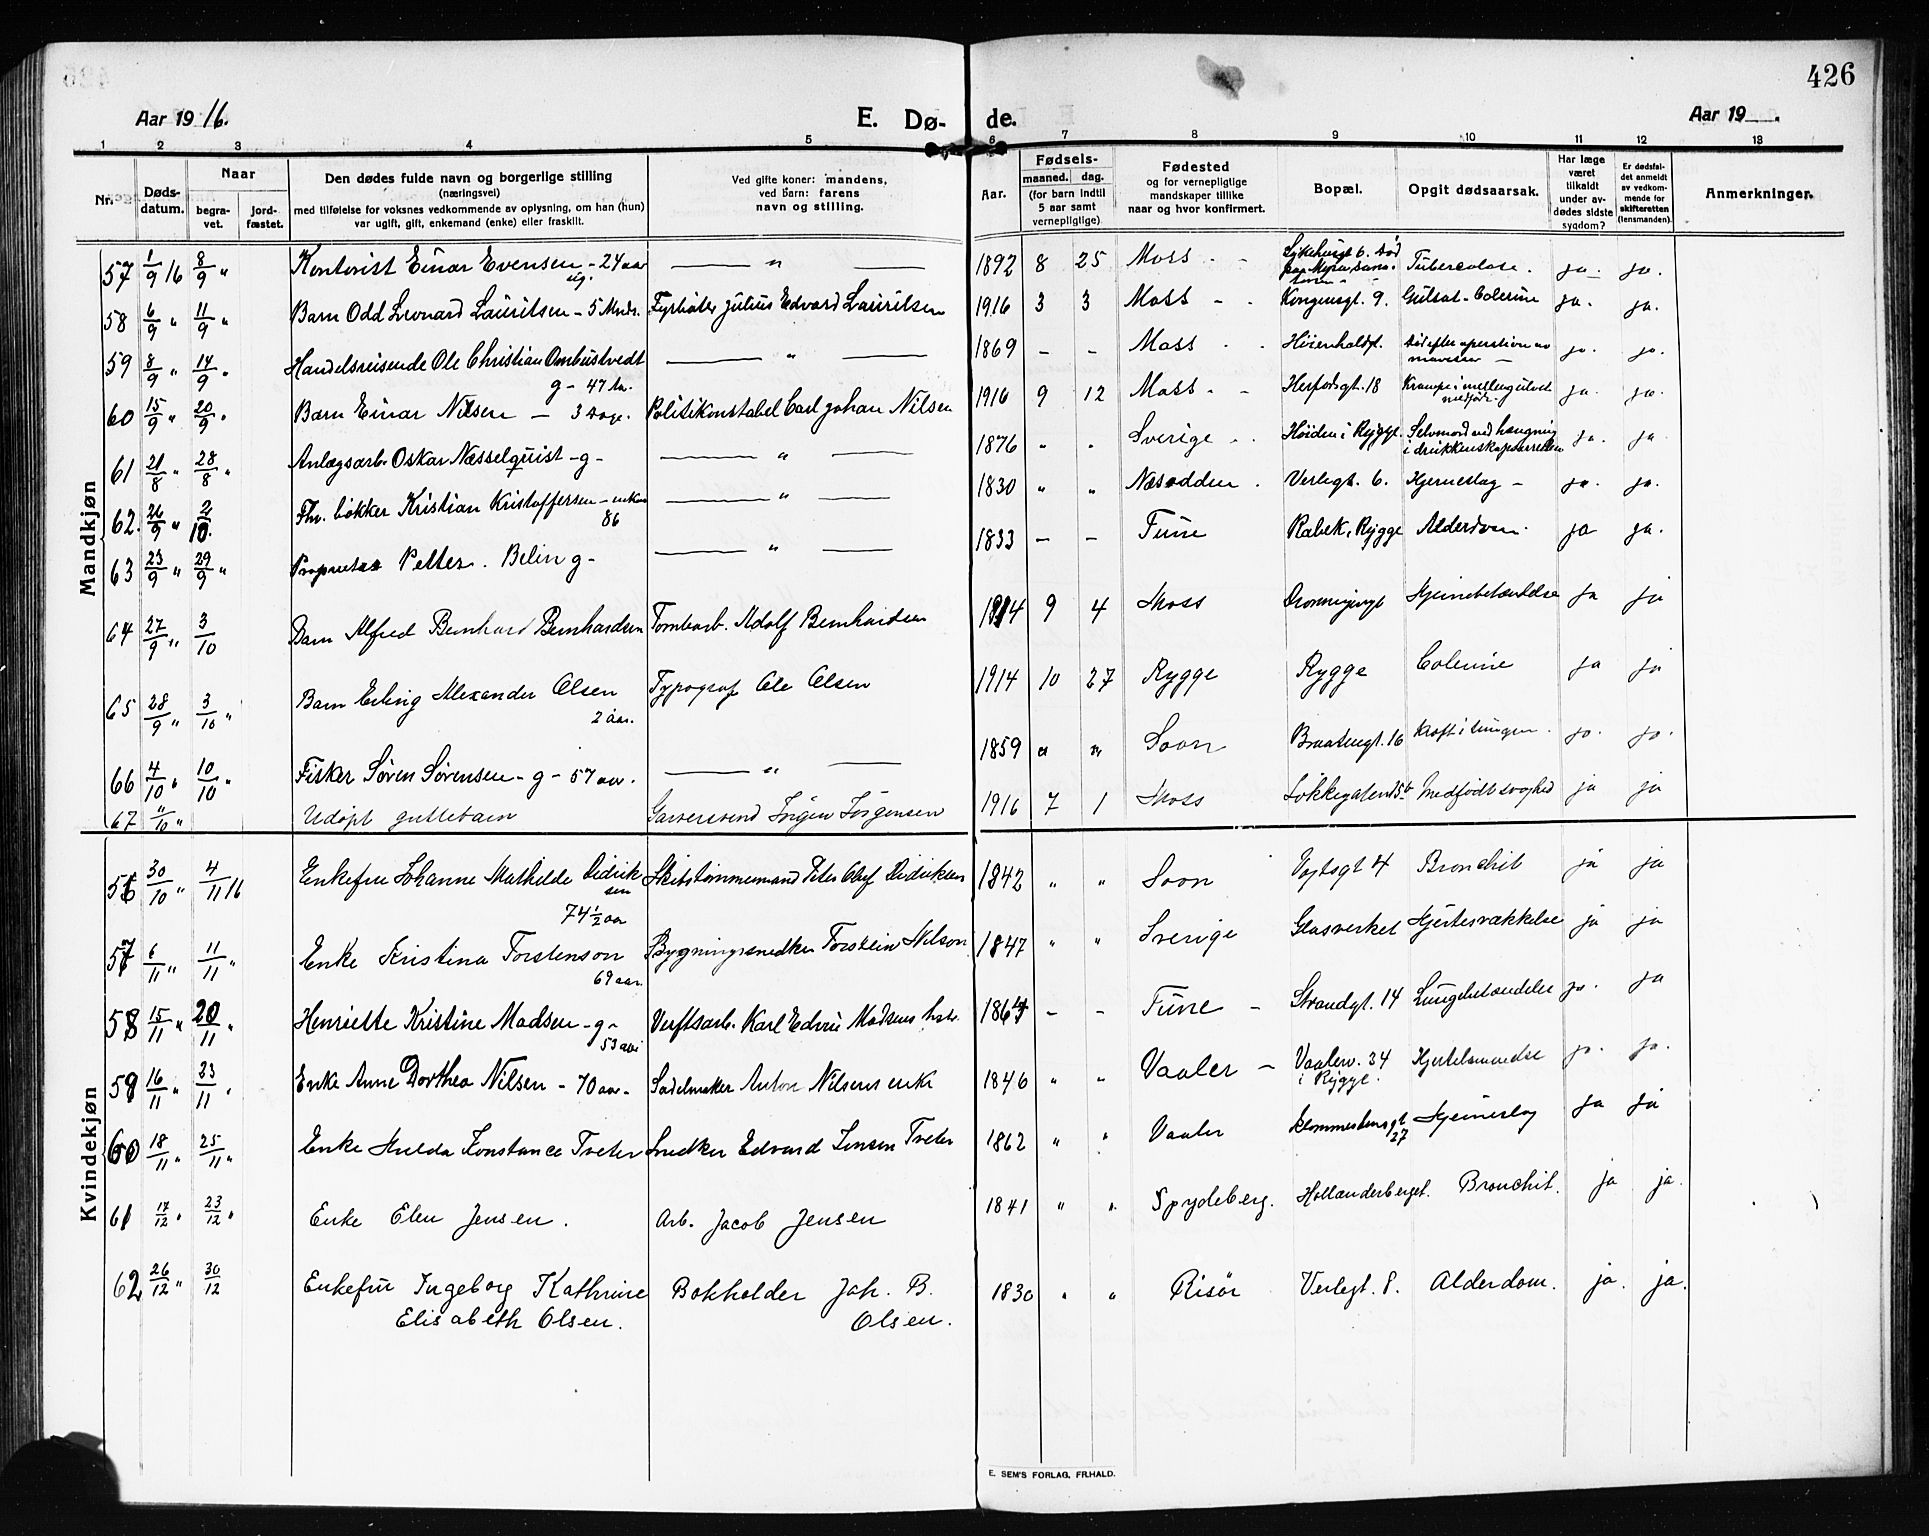 426
Aar 1916.
E. Dø- de.
Aar 19
1 2 3 4 5 6 7 8 9 10 11 12 13
Nr. Døds-datum. Naar begra-vet. jord-fæstet. Den dødes fulde navn og borgerlige stilling (næringsvei) med tilføielse for voksnes vedkommende av oplysning, om han (hun) var ugift, gift, enkemand (enke) eller fraskilt. Ved gifte koner: mandens, ved barn: farens navn og stilling. Aar. Fødsels- maaned. dag. (for barn indtil 5 aar samt vernepligtige) Fødested og for vernepligtige mandskaper tillike naar og hvor konfirmert. Bopæl. Opgit dødsaarsak. Har læge været tilkaldt under av-dødes sidste sygdom? Er dødsfal-det anmeldt av vedkom-mende for skifteretten (lensmanden). Anmerkninger.
Mandkjøn
57 1/9 16 8/9 " Kontorist Einar Evensen - 24 aar ug. " 1892 8 25 Moss - - Sykehusgt 6. Død paa Tuberculose. ja. ja.
58 6/9 " 11/9 " Barn Odd Leonard Lauritsen - 5 Mndr. Fyrbøter Julius Edvard Lauritsen 1916 3 3 Moss - - Kongensgt. 9. Gulsot - Colerine ja. ja.
59 8/9 " 14/9 " Handelsreisende Ole Christian Ombustvedt g - 47 " 1869 - - Moss - - Død efter operation av mavesaar - ja. ja.
60 15/9 " 20/9 " Barn Einar Nilsen - 3 Dage. Politikonstabel Carl Johan Nilsen 1916 9 12 Moss - - Herfodsgt. 18 medfødt. ja. ja.
61 21/8 " 28/8 " Anlægsarb. Oskar Næsselquist - g - " 1876 " " Sverige - - Høiden i Rygge. Selvmord ved hængning i ja. ja
62. 26/9 " 2/10. Fhv. bøkker Kristian Kristoffersen - enkem 86 " 1830 " " Næsodden - Verlegt. 6. Hjerneslag - ja. ja.
63 23/9 " 29/9 " Proprietær Petter. Belin g - " 1833 - - Tune Rabek, Rygge Alderdom. ja ja.
64 27/9 " 3/10 Barn Alfred Bernhard Bernhardsen Tomtearb. Adolf Bernhardsen 1914 9 4 Moss Dronningensgt Hjernebetændelse ja ja
65 28/9 " 3/10 " Barn Erling Alexander Olsen 2 aar. Typograf Ole Olsen 1914 10 27 Rygge Rygge Colerine ja ja
66 4/10 " 10/10 " Fisker Søren Sørensen - g - 57 aar. " 1859 " " Soon Braatengt. 16 Kræft i lungen. ja. ja.
67 "/10 " Udøpt guttebarn Garversvend Jørgen Jørgensen 1916 7 1 Moss Løkkegaten 15 b Medfødt svaghed ja ja
Kvindekjøn
56 30/10 " 4/11 16 Enkefru Johanne Mathilde Didrik-sen 74 1/2 aar Skibstømmermand Peter Oluf Didriksen 1842 " " Soon Vogtsgt 4 Bronchit ja ja
57 6/11 " 11/11 " Enke Kristina Torstenson 69 aar. Bygningssnedker Torstein Nilson 1847 " " Sverige Glasverket Hjertesvækkelse ja ja
58 15/11 " 20/11 " Henriette Kristine Madsen - g - 53 aar Verftsarb. Karl Edvin Madsens hstr. 1864 - - Tune - Strandgt. 14 Lungebetændelse ja. ja
59 16/11 " 23/11 " Enke Anne Dorthea Nilsen - 70 aar - Sadelmaker Anton Nilsens enke 1846 " " Vaaler - Vaalerv. 34 i Rygge. Hjertelammelse ja. ja.
60 18/11 " 25/11 " Enke Hulda Konstance Treter Snedker Edvard Jensen Treter 1862 " " Vaaler 27 Hjerneslag ja ja
61 17/12 " 23/12 " Enke Elen Jensen. Arb. Jacob Jensen 1841 " " Spydeberg. Hollænderberget. Bronchit. ja ja.
62 26/12 " 30/12 Enkefru Ingeborg Kathrine Elisabeth Olsen. Bokholder Joh. B. Olsen. 1830 " " Risør Verlegt. 8. Alderdom. ja. ja.
E. SEM'S FORLAG, FRHALD.